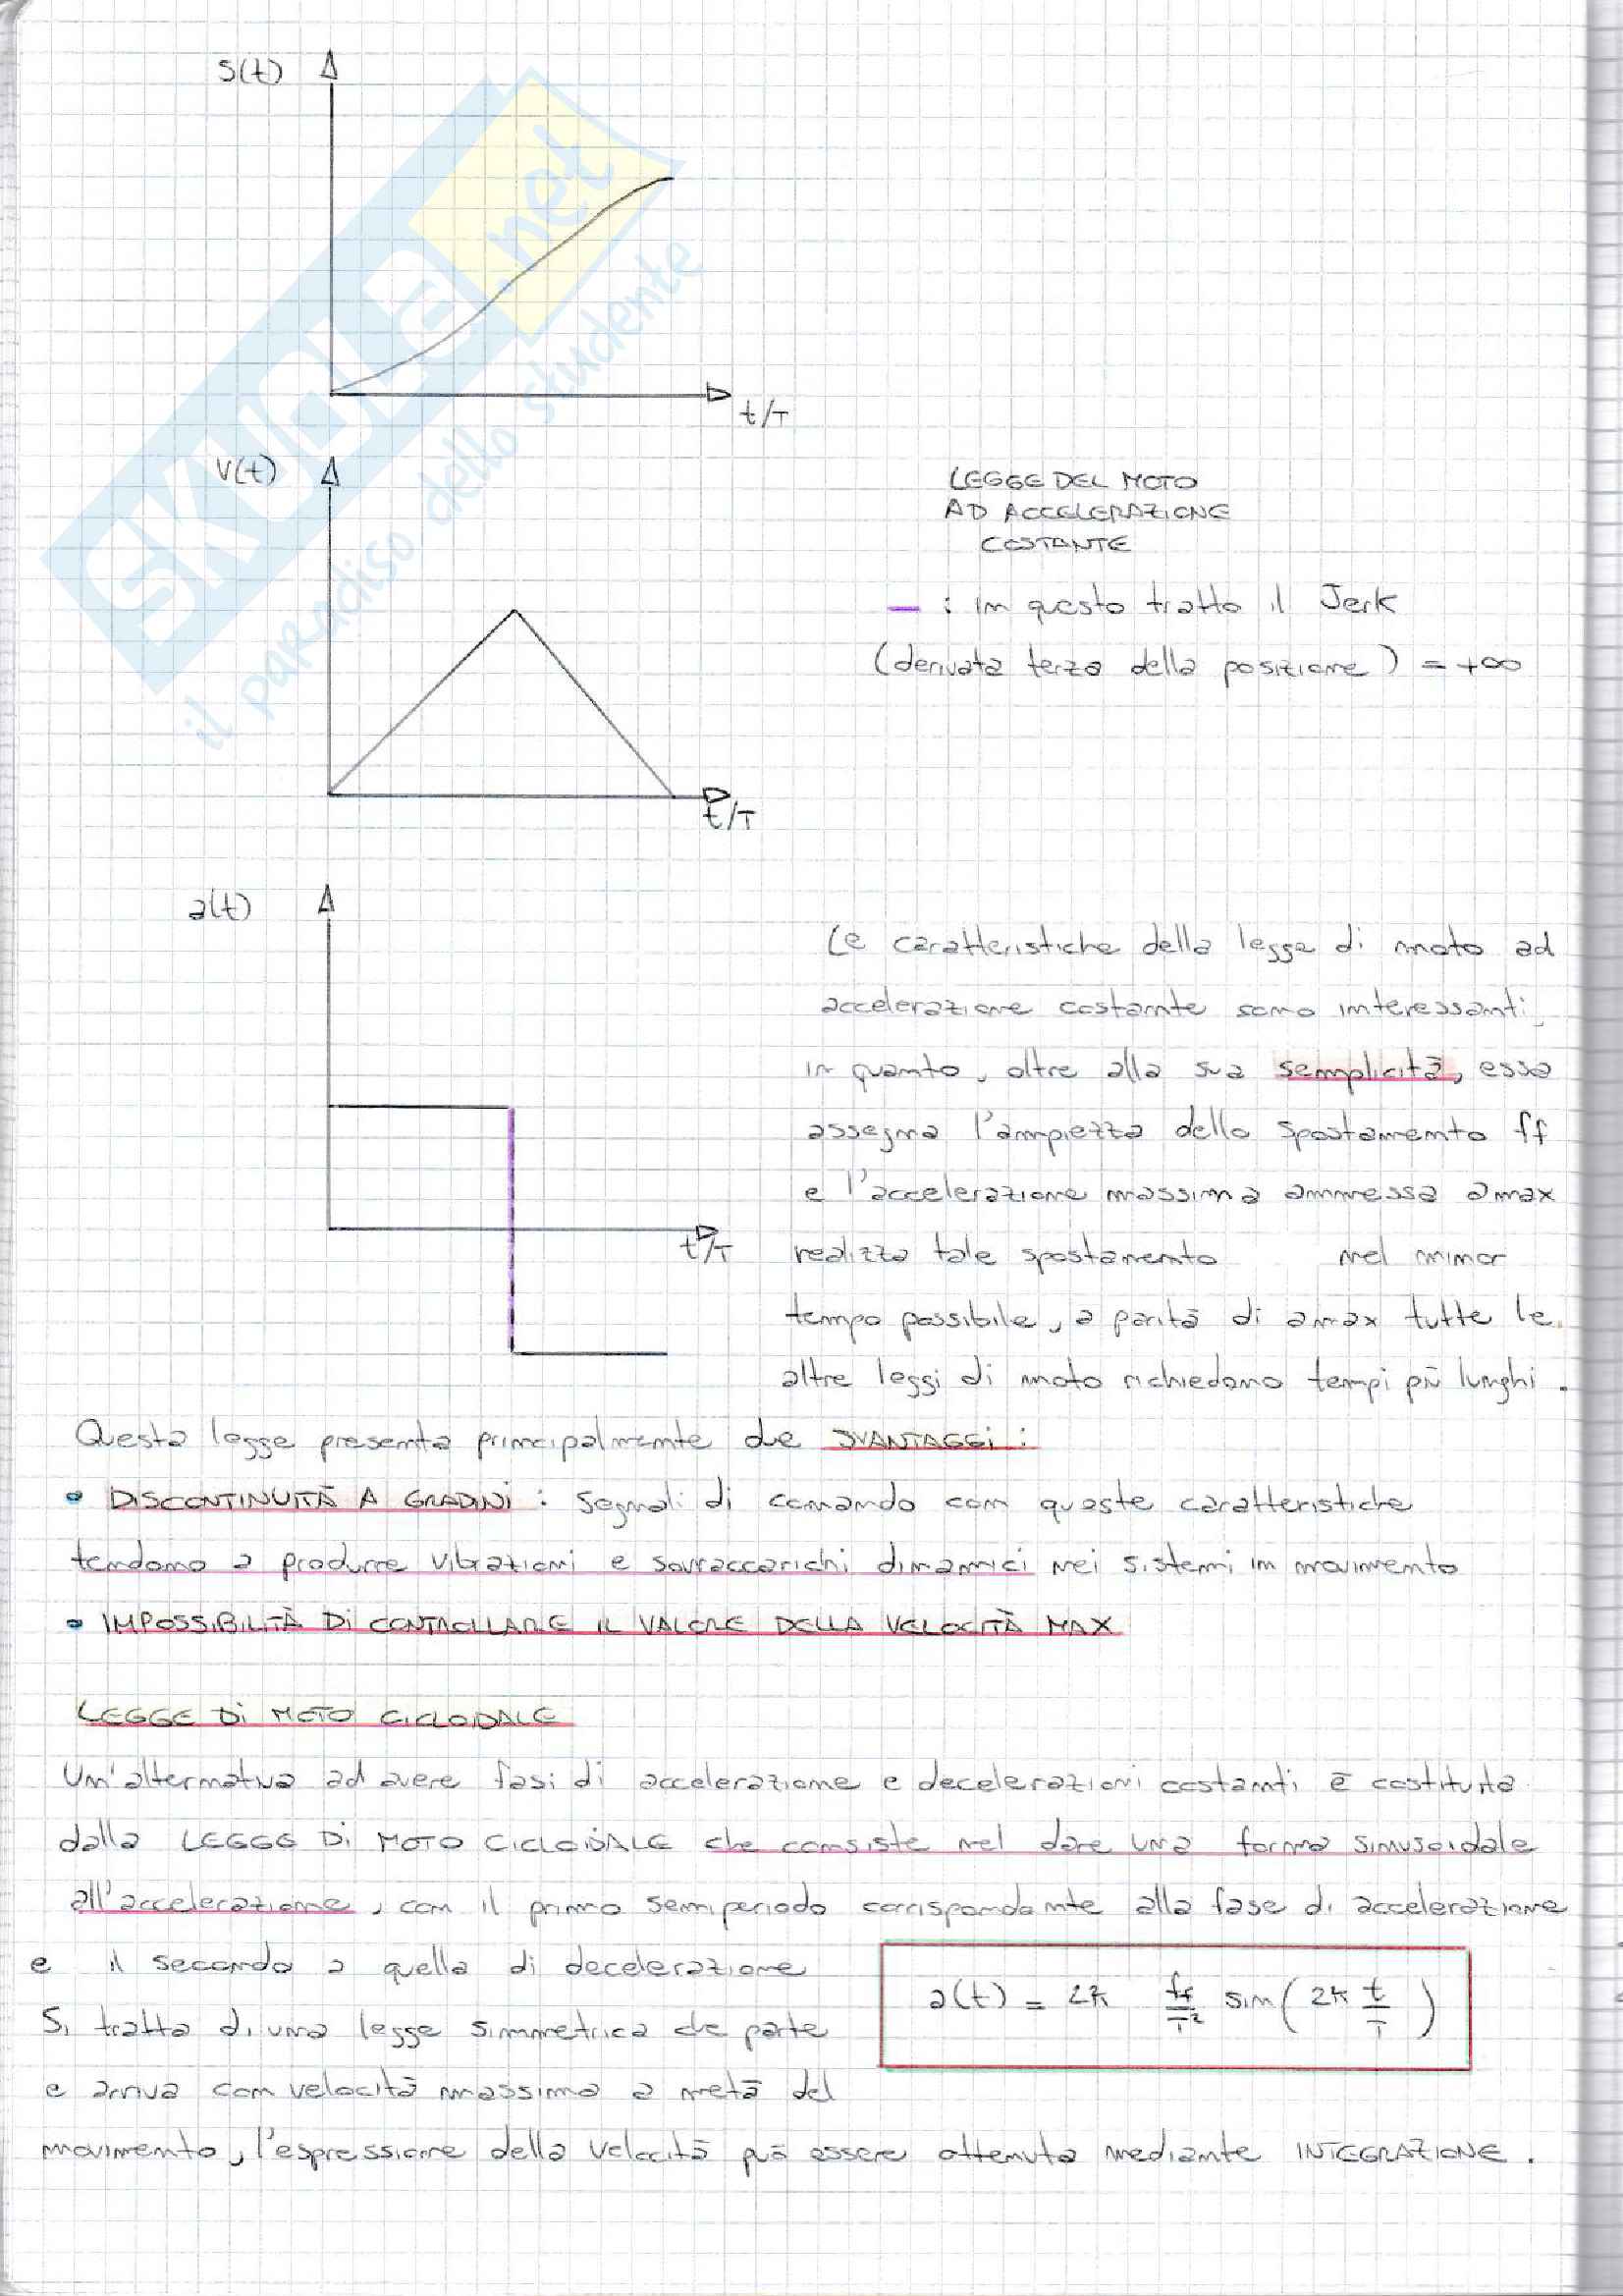 S(t)
t/T
V(t)
t/T
LEGGE DEL MOTO
AD ACCELERAZIONE
COSTANTE
: in questo tratto il Jerk
(derivata terza della posizione) = +∞
a(t)
t/T
Le caratteristiche della legge di moto ad
accelerazione costante sono interessanti
in quanto, oltre alla sua semplicità, essa
assegna l'ampiezza dello spostamento ff
e l'accelerazione massima ammessa amax
realizza tale spostamento nel minor
tempo possibile, a parità di amax tutte le
altre leggi di moto richiedono tempi più lunghi.
Questa legge presenta principalmente due SVANTAGGI:
• DISCONTINUITÀ A GRADINI: segnali di comando con queste caratteristiche
tendono a produrre vibrazioni e sovraccarichi dinamici nei sistemi in movimento
• IMPOSSIBILITÀ DI CONTROLLARE IL VALORE DELLA VELOCITÀ MAX
LEGGE DI MOTO CICLOIDALE
Un'alternativa ad avere fasi di accelerazione e decelerazioni costanti è costituita
dalla LEGGE DI MOTO CICLOIDALE che consiste nel dare una forma sinusoidale
all'accelerazione, con il primo semiperiodo corrispondente alla fase di accelerazione
e il secondo a quella di decelerazione
a(t) = 2π ff/T² sin(2π t/T)
Si tratta di una legge simmetrica che parte
e arriva con velocità massima a metà del
movimento, l'espressione della velocità può essere ottenuta mediante INTEGRAZIONE.
SKUOLA.net
il paradiso dello studente